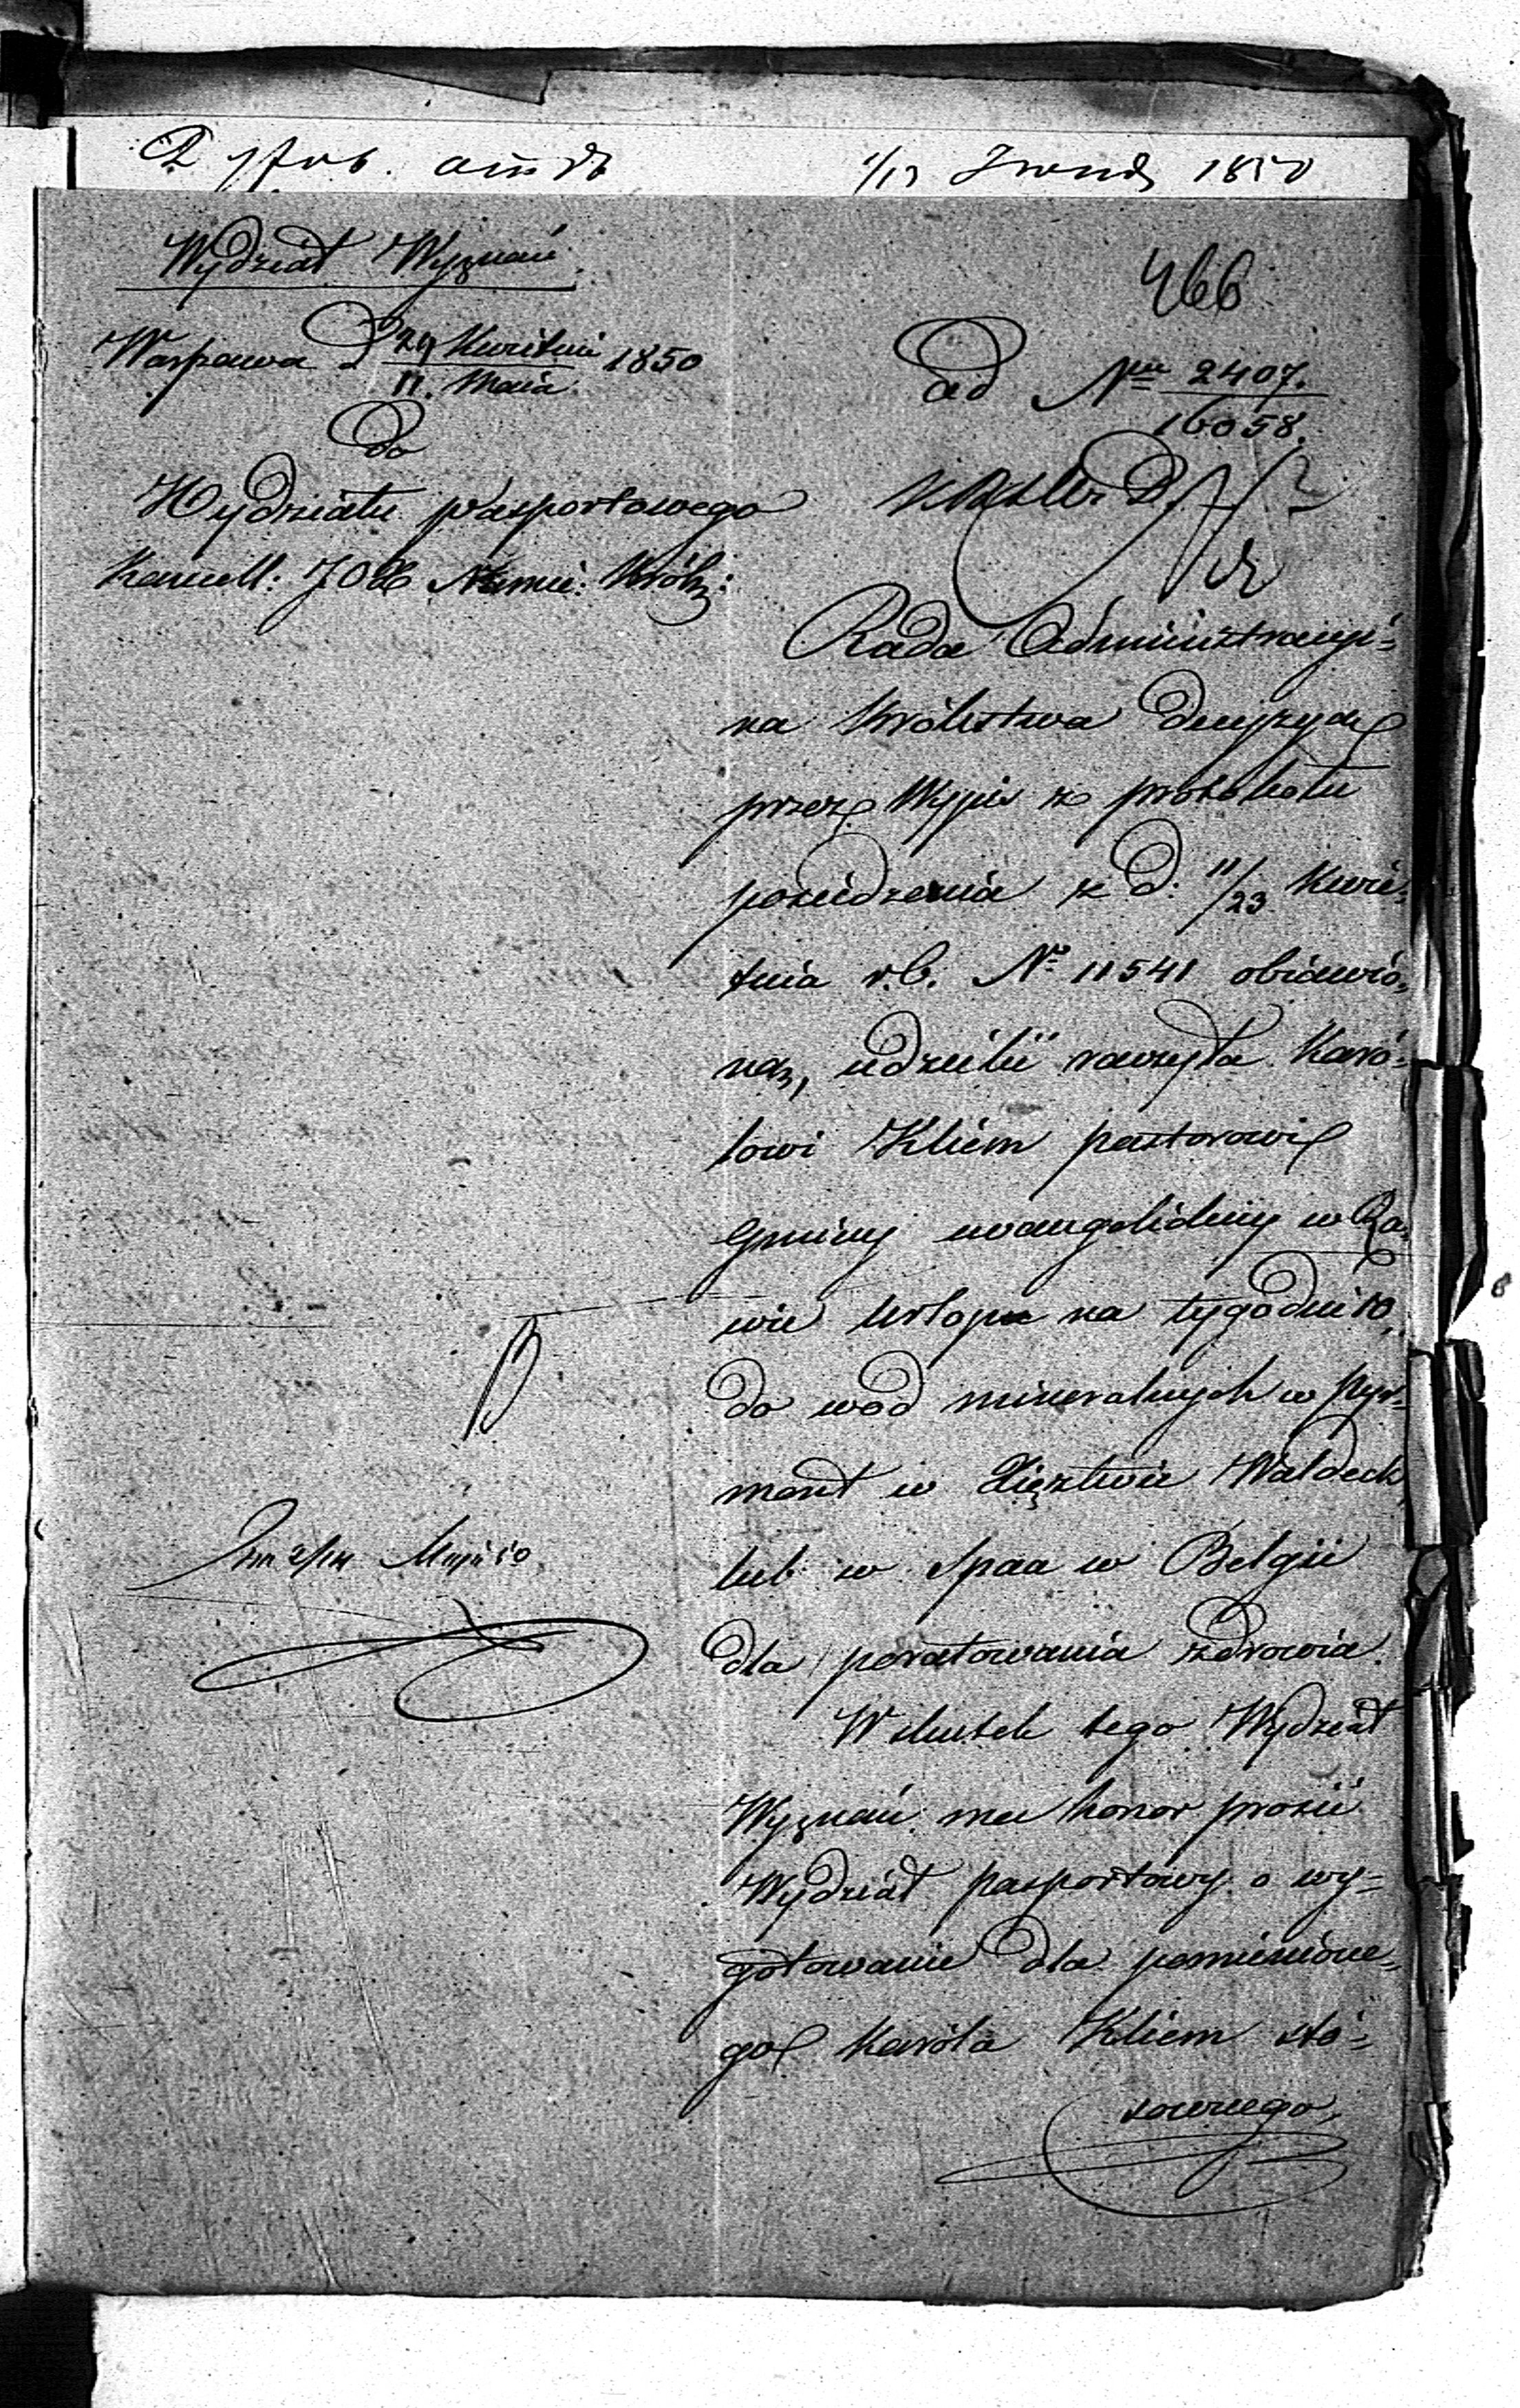 1850
Wydział Wyznań.
466
Warszawa d 29 Kwietnia / 11. Maia 1850
ad Nru 2407. / 16058.
do
Wydziału paszportowego
Kancell: JO Namie: Król:
Rada Administracyj=
na Królestwa decyzyą
przez Wypis z protokołu
posiedzenia z d. 11/23 Kwie=
tnia r.b. Nº 11541 obiawio=
ną, udzielić raczyła Karo=
lowi Kliem pastorowi
Gminy ewangelickiey w Ra=
wie urlopu na tygodni 10,
do wód mineralnych w Pyr=
mont w Xięztwie Waldeck,
lub w Spaa w Belgii
dla poratowania zdrowia.
W skutek tego Wydział
Wyznań ma honor prosić
Wydział paszportowy o wy=
gotowanie dla pomienione=
go Karola Kliem sto=
sownego,